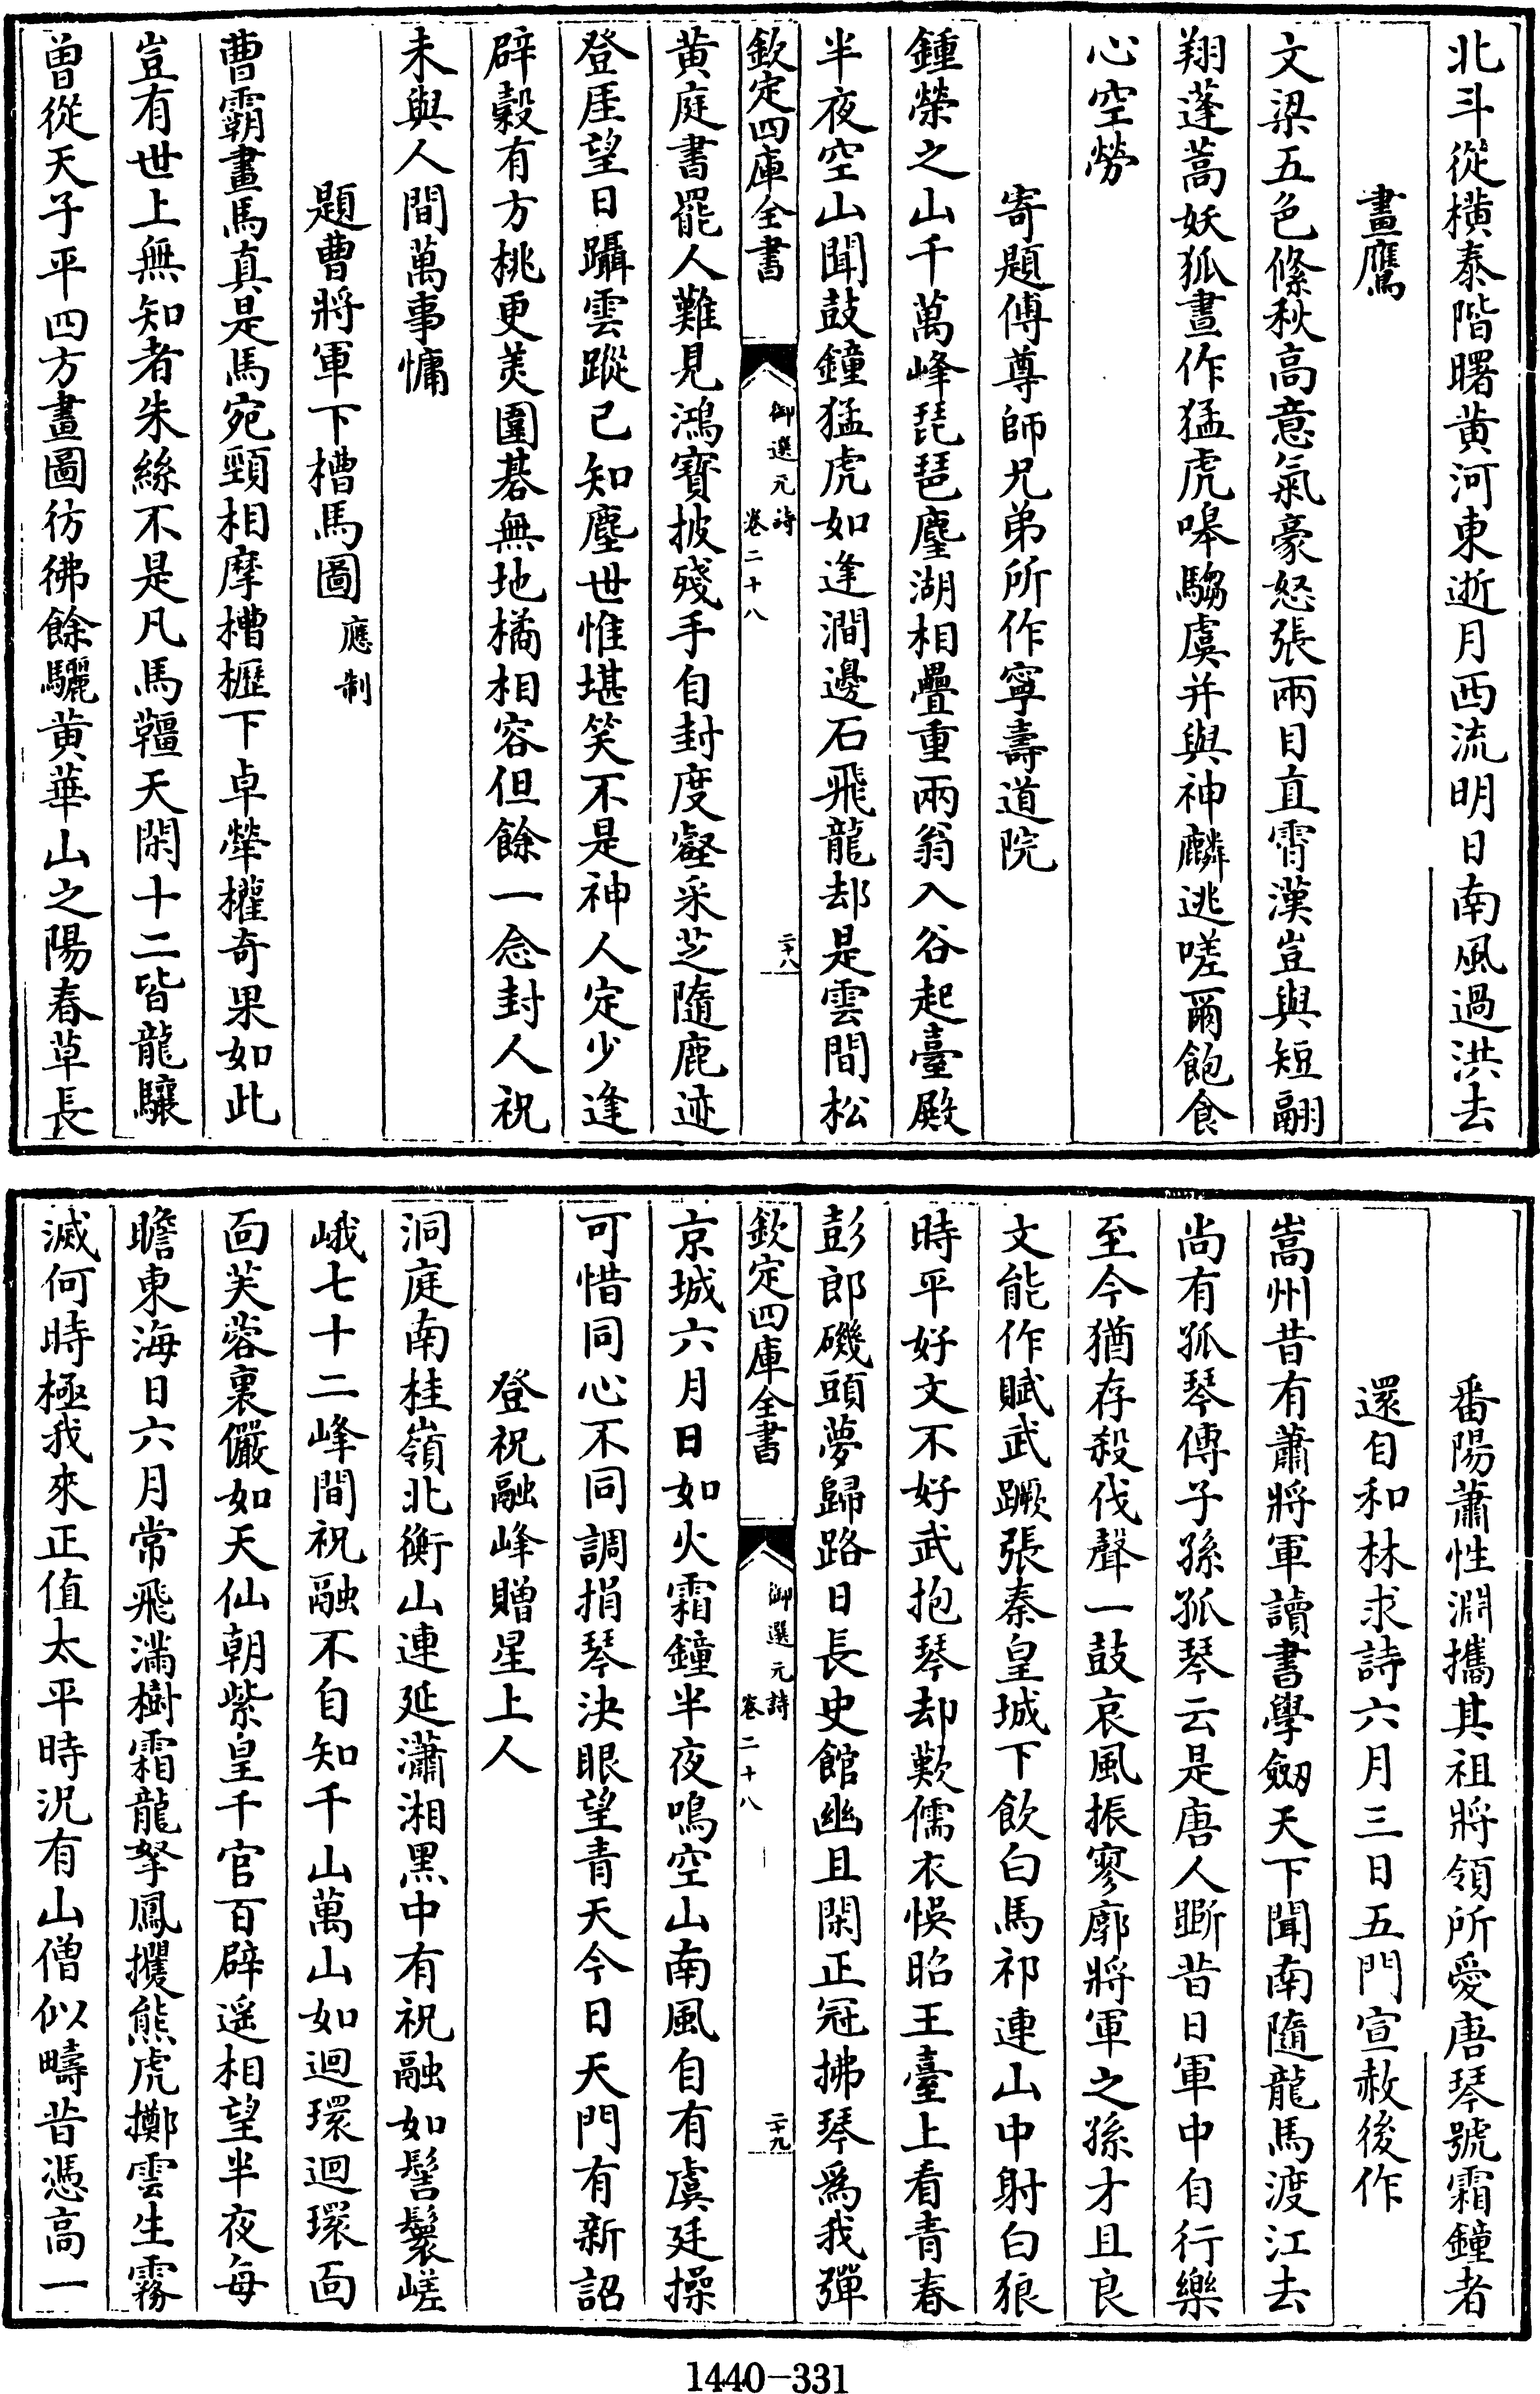 北斗從橫泰階曙黄河東逝月西流明日南風過洪去
畫鷹
文梁五色絛秋高意氣豪怒張兩目直霄漢豈與短翮
翔蓬蒿妖狐晝作猛虎嘷騶虞并與神麟逃嗟爾飽食
心空勞
寄題傅尊師兄弟所作寧壽道院
鍾榮之山千萬峰琵琶鏖湖相疊重兩翁入谷起臺殿
半夜空山聞鼓鐘猛虎如逢澗邊石飛龍却是雲間松
欽定四庫全書
御選元詩
卷二十八
二十八
黄庭書罷人難見鴻寳披殘手自封度壑采芝隨鹿迹
登厓望日躡雲蹤已知塵世惟堪笑不是神人定少逢
辟穀有方桃更美圍碁無地橘相容但餘一念封人祝
未與人間萬事慵
題曹將軍下槽馬圖應制
曹霸畫馬真是馬宛頸相摩槽櫪下卓犖權奇果如此
豈有世上無知者朱絲不是凡馬韁天閑十二皆龍驤
曾從天子平四方畫圖彷彿餘驪黄華山之陽春草長
番陽蕭性淵攜其祖將領所愛唐琴號霜鐘者
還自和林求詩六月三日五門宣赦後作
嵩州昔有蕭將軍讀書學劔天下聞南隨龍馬渡江去
尚有孤琴傳子孫孤琴云是唐人斲昔日軍中自行樂
至今猶存殺伐聲一鼓哀風振寥廓將軍之孫才且良
文能作賦武蹶張秦皇城下飲白馬祁連山中射白狼
時平好文不好武抱琴却歎儒衣悞昭王臺上看青春
彭郎磯頭夢歸路日長史館幽且閑正冠拂琴爲我彈
欽定四庫全書
御選元詩
卷二十八
二十九
京城六月日如火霜鐘半夜鳴空山南風自有虞廷操
可惜同心不同調捐琴決眼望青天今日天門有新詔
登祝融峰贈星上人
洞庭南桂嶺北衡山連延瀟湘黑中有祝融如髻鬟嵯
峨七十二峰間祝融不自知千山萬山如迴環迴環面
面芙蓉裏儼如天仙朝紫皇千官百辟遥相望半夜每
瞻東海日六月常飛滿樹霜龍拏鳳攫熊虎擲雲生霧
滅何時極我來正值太平時況有山僧似疇昔憑高一
1440-331